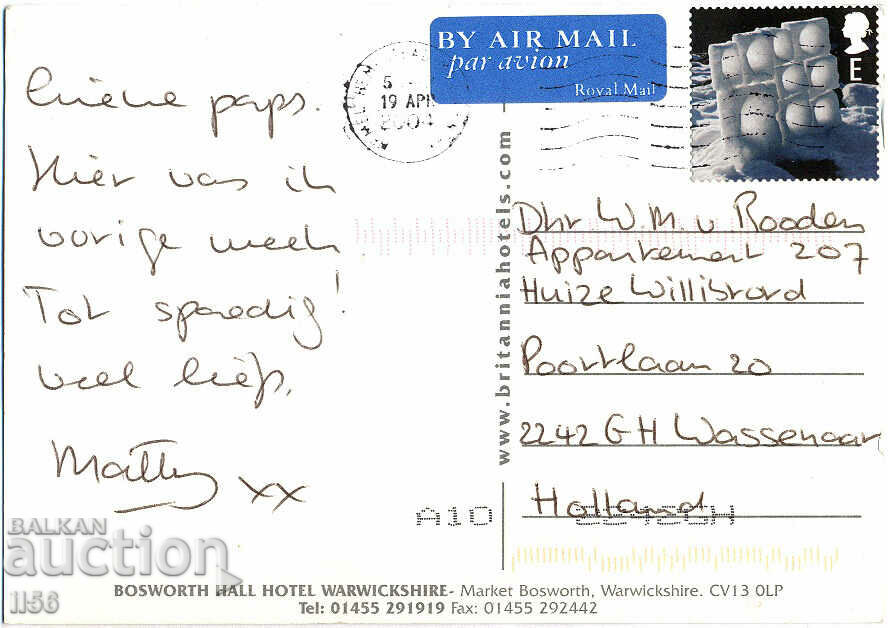 BY AIR MAIL
par avion
Royal Mail
E
5
19 APR
2004
Lieve paps.
Hier was ik
vorige week
Tot spoedig!
veel liefs,
xx
www.britanniahotels.com
Dhr W.M. v Rooden
Appartement 207
Huize Willibrord
Poortlaan 20
2242 GH Wassenaar
Holland
A10 2242GH
BALKAN
auction
1156
BOSWORTH HALL HOTEL WARWICKSHIRE- Market Bosworth, Warwickshire. CV13 0LP
Tel: 01455 291919 Fax: 01455 292442